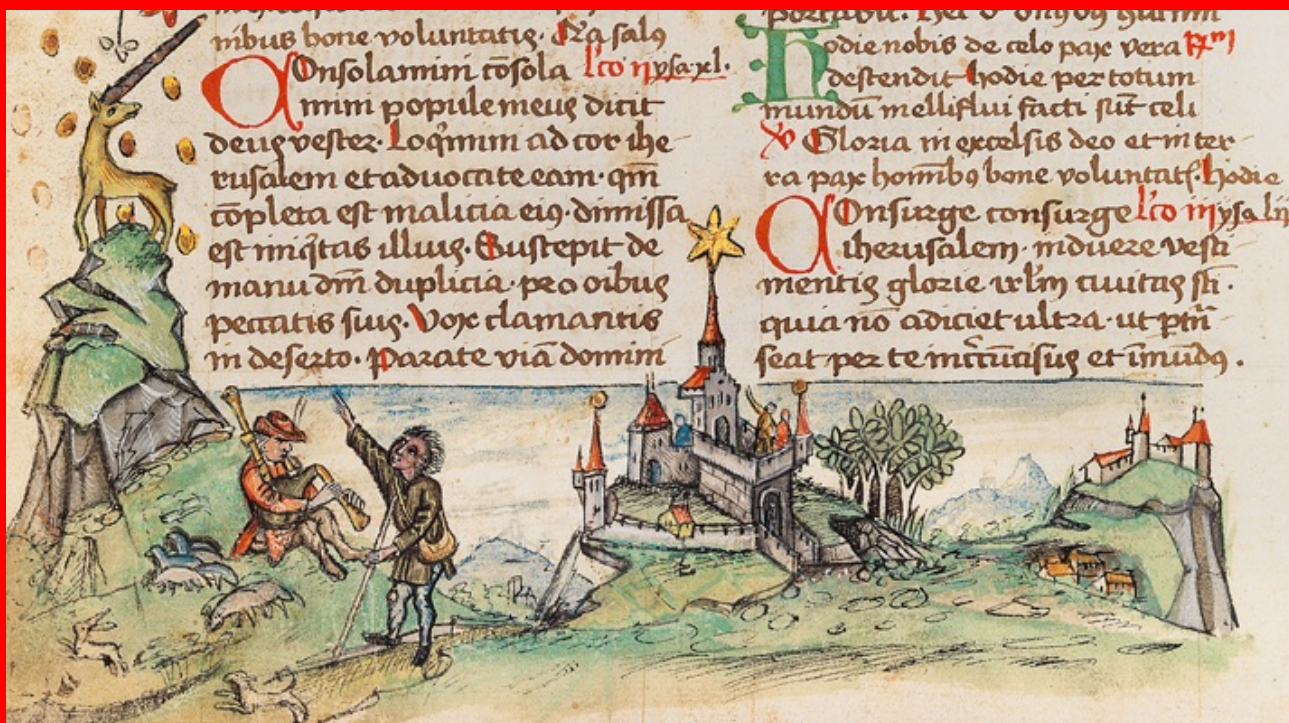 nibus bone voluntatis. Na salꝰ
Consolamini cōsola l'co ij ysa.xl.
mini popule meus dicit
deus vester. Loqꝰmini ad cor ihe
rusalem et advocate eam. qm̄
cōpleta est malicia eiꝰ. dimissa
est iniqͥtas illius. Suscepit de
manu dm̄ duplicia. pro oibus
peccatis suis. Vox clamantis
in deserto. Parate viā domini
portabit.
Hodie nobis de celo pax vera
descendit hodie per totum
mundū melliflui facti sūt celi
Gloria in excelsis deo et in ter
ra pax hominibꝰ bone voluntat. Hodie
Consurge consurge l'co iij ysa lij
iherusalem. induere vesti
mentis glorie irl'm civitas sc̄i.
quia nō adiciet ultra. ut ptn̄
seat per te incircūcisus et īmūdꝰ.